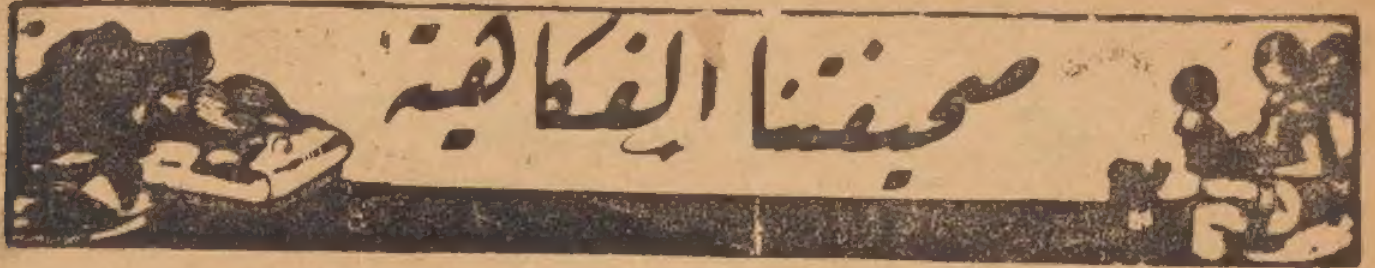 صحيفتنا الفكاهية